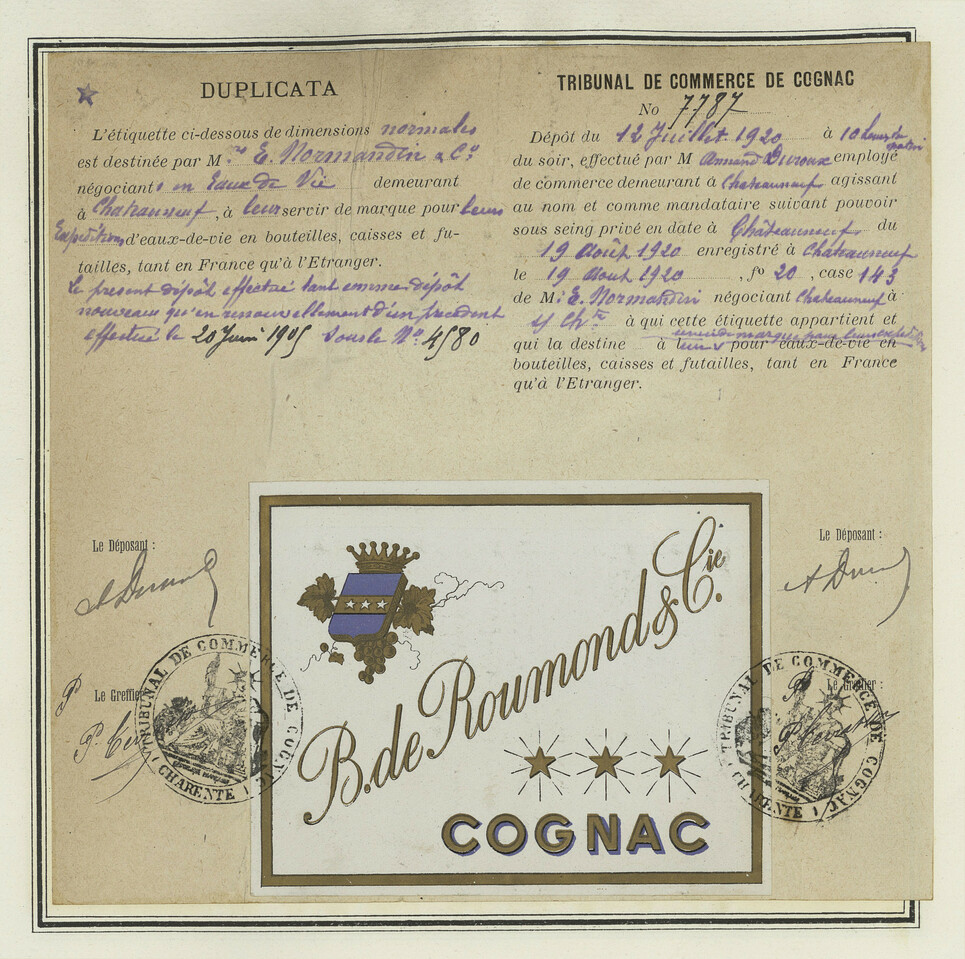 DUPLICATA
L'étiquette ci-dessous de dimensions normales
est destinée par M.rs E. Normandin & Co
négociants en Eaux de Vie demeurant
à Chateauneuf, à leur servir de marque pour leurs
Expéditions d'eaux-de-vie en bouteilles, caisses et fu-
tailles, tant en France qu'à l'Etranger.
Le present dépôt effectué tant comme dépôt
nouveau qu'en renouvellement d'un précédent
effectué le 20 Juin 1905 sous le No 4580
TRIBUNAL DE COMMERCE DE COGNAC
No 7787
Dépôt du 12 Juillet 1920 à 10 heures du matin
du soir, effectué par M Armand Duroux employé
de commerce demeurant à Chateauneuf agissant
au nom et comme mandataire suivant pouvoir
sous seing privé en date à Châteauneuf du
19 Août 1920 enregistré à Chateauneuf
le 19 Aout 1920, fo 20, case 143
de M. E. Normandin négociant Chateauneuf à
s/ Chte à qui cette étiquette appartient et
qui la destine à leur pour eaux-de-vie en
bouteilles, caisses et futailles, tant en France
qu'à l'Etranger.
Le Déposant :
Le Greffier
TRIBUNAL DE COMMERCE DE COGNAC
CHARENTE
B. de Roumond & Cie.
COGNAC
Le Déposant :
Le Greffier :
TRIBUNAL DE COMMERCE DE COGNAC
CHARENTE